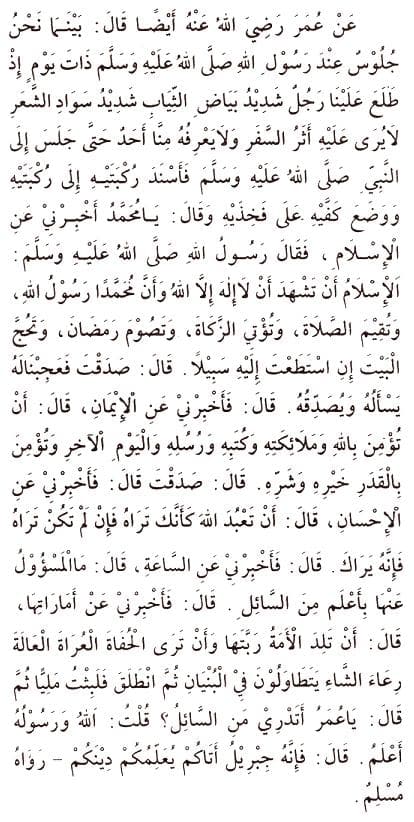 عَنْ عُمَرَ رَضِيَ اللهُ عَنْهُ أَيْضًا قَالَ: بَيْنَمَا نَحْنُ
جُلُوْسٌ عِنْدَ رَسُوْلِ اللهِ صَلَّى اللهُ عَلَيْهِ وَسَلَّمَ ذَاتَ يَوْمٍ إِذْ
طَلَعَ عَلَيْنَا رَجُلٌ شَدِيْدُ بَيَاضِ الثِّيَابِ شَدِيْدُ سَوَادِ الشَّعَرِ
لَايُرَى عَلَيْهِ أَثَرُ السَّفَرِ وَلَايَعْرِفُهُ مِنَّا أَحَدٌ حَتَّى جَلَسَ إِلَى
النَّبِيِّ صَلَّى اللهُ عَلَيْهِ وَسَلَّمَ فَأَسْنَدَ رُكْبَتَيْهِ إِلَى رُكْبَتَيْهِ
وَوَضَعَ كَفَّيْهِ عَلَى فَخِذَيْهِ وَقَالَ: يَامُحَمَّدُ أَخْبِرْنِيْ عَنِ
الْإِسْلَامِ، فَقَالَ رَسُوْلُ اللهِ صَلَّى اللهُ عَلَيْهِ وَسَلَّمَ:
اَلْإِسْلَامُ أَنْ تَشْهَدَ أَنْ لَاإِلٰهَ إِلَّا اللهُ وَأَنَّ مُحَمَّدًا رَسُوْلُ اللهِ،
وَتُقِيْمَ الصَّلَاةَ، وَتُؤْتِيَ الزَّكَاةَ، وَتَصُوْمَ رَمَضَانَ، وَتَحُجَّ
الْبَيْتَ إِنِ اسْتَطَعْتَ إِلَيْهِ سَبِيْلًا. قَالَ: صَدَقْتَ فَعَجِبْنَالَهُ
يَسْأَلُهُ وَيُصَدِّقُهُ. قَالَ: فَأَخْبِرْنِيْ عَنِ الْإِيْمَانِ، قَالَ: أَنْ
تُؤْمِنَ بِاللهِ وَمَلَائِكَتِهِ وَكُتُبِهِ وَرُسُلِهِ وَالْيَوْمِ الْآخِرِ وَتُؤْمِنَ
بِالْقَدَرِ خَيْرِهِ وَشَرِّهِ. قَالَ: صَدَقْتَ قَالَ: فَأَخْبِرْنِيْ عَنِ
الْإِحْسَانِ، قَالَ: أَنْ تَعْبُدَ اللهَ كَأَنَّكَ تَرَاهُ فَإِنْ لَمْ تَكُنْ تَرَاهُ
فَإِنَّهُ يَرَاكَ. قَالَ: فَأَخْبِرْنِيْ عَنِ السَّاعَةِ، قَالَ: مَاالْمَسْؤُوْلُ
عَنْهَا بِأَعْلَمِ مِنَ السَّائِلِ. قَالَ: فَأَخْبِرْنِيْ عَنْ أَمَارَاتِهَا،
قَالَ: أَنْ تَلِدَ الْأَمَةُ رَبَّتَهَا وَأَنْ تَرَى الْحُفَاةَ الْعُرَاةَ الْعَالَةَ
رِعَاءَ الشَّاءِ يَتَطَاوَلُوْنَ فِيْ الْبُنْيَانِ ثُمَّ انْطَلَقَ فَلَبِثْتُ مَلِيًّا ثُمَّ
قَالَ: يَاعُمَرُ أَتَدْرِيْ مَنِ السَّائِلُ؟ قُلْتُ: اَللهُ وَرَسُوْلُهُ
أَعْلَمُ. قَالَ: فَإِنَّهُ جِبْرِيْلُ أَتَاكُمْ يُعَلِّمُكُمْ دِيْنَكُمْ – رَوَاهُ
مُسْلِمٌ.